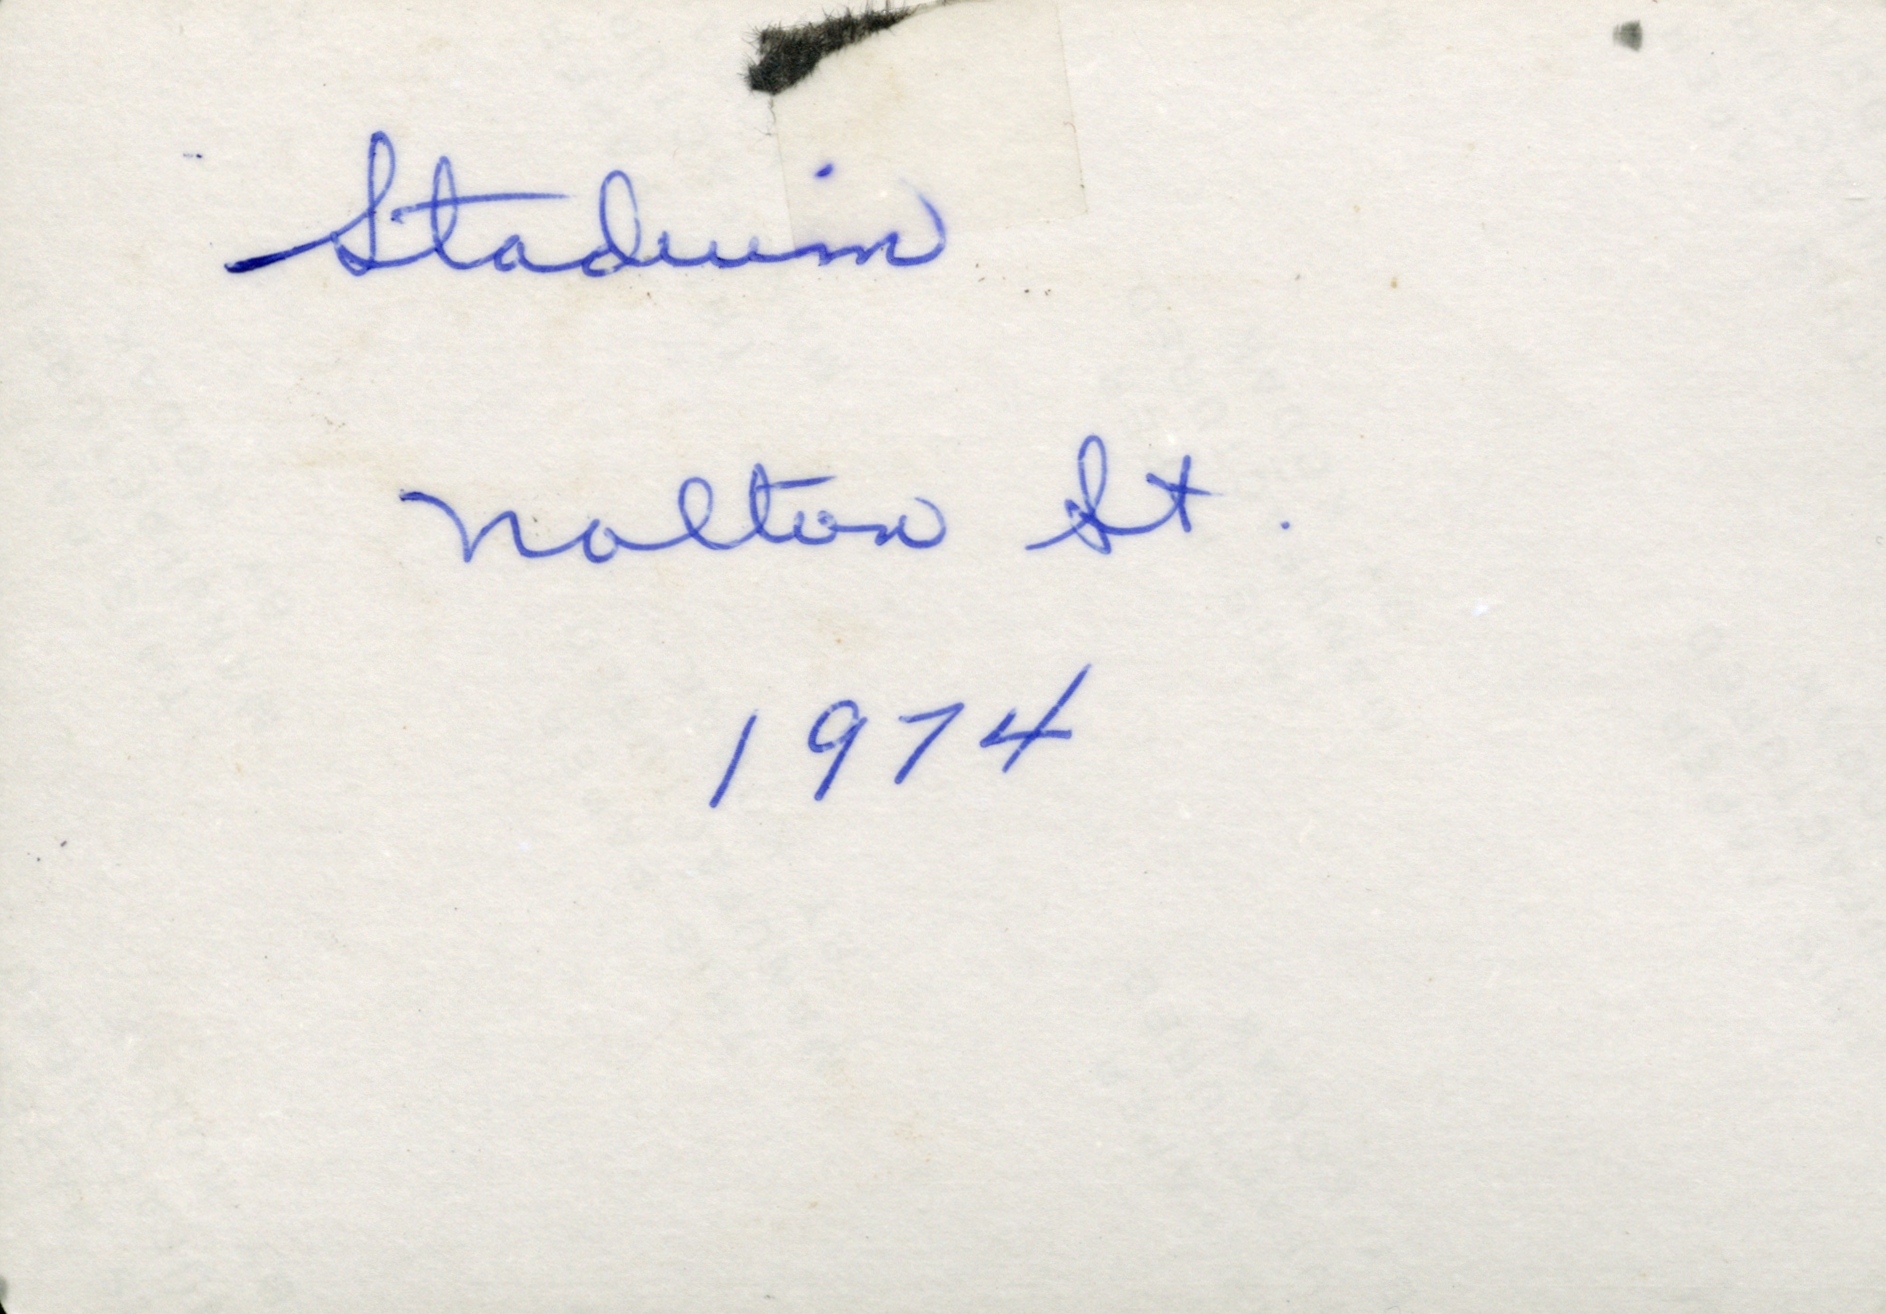 Stadium
Nolton St.
1974